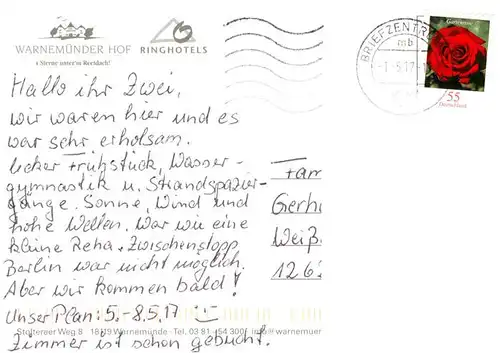 WARNEMÜNDER HOF
RINGHOTELS
4 Sterne unter'm Reetdach!
BRIEFZENTR
mb
-1.-5.17-1
Gartenrose
55
Deutschland
Hallo ihr Zwei,
wir waren hier und es
war sehr erholsam.
Lecker Frühstück, Wasser-
gymnastik u. Strandspazier-
gänge. Sonne, Wind und
hohe Wellen. War wie eine
kleine Reha. Zwischenstopp
Berlin war nicht möglich.
Aber wir kommen bald!
Unser Plan: 5.-8.5.17
Zimmer ist schon gebucht.
Fam
Gerh
Weiß
126
Stolteraer Weg 8 18119 Warnemünde · Tel. 03 81 54 300 info@warnemuer